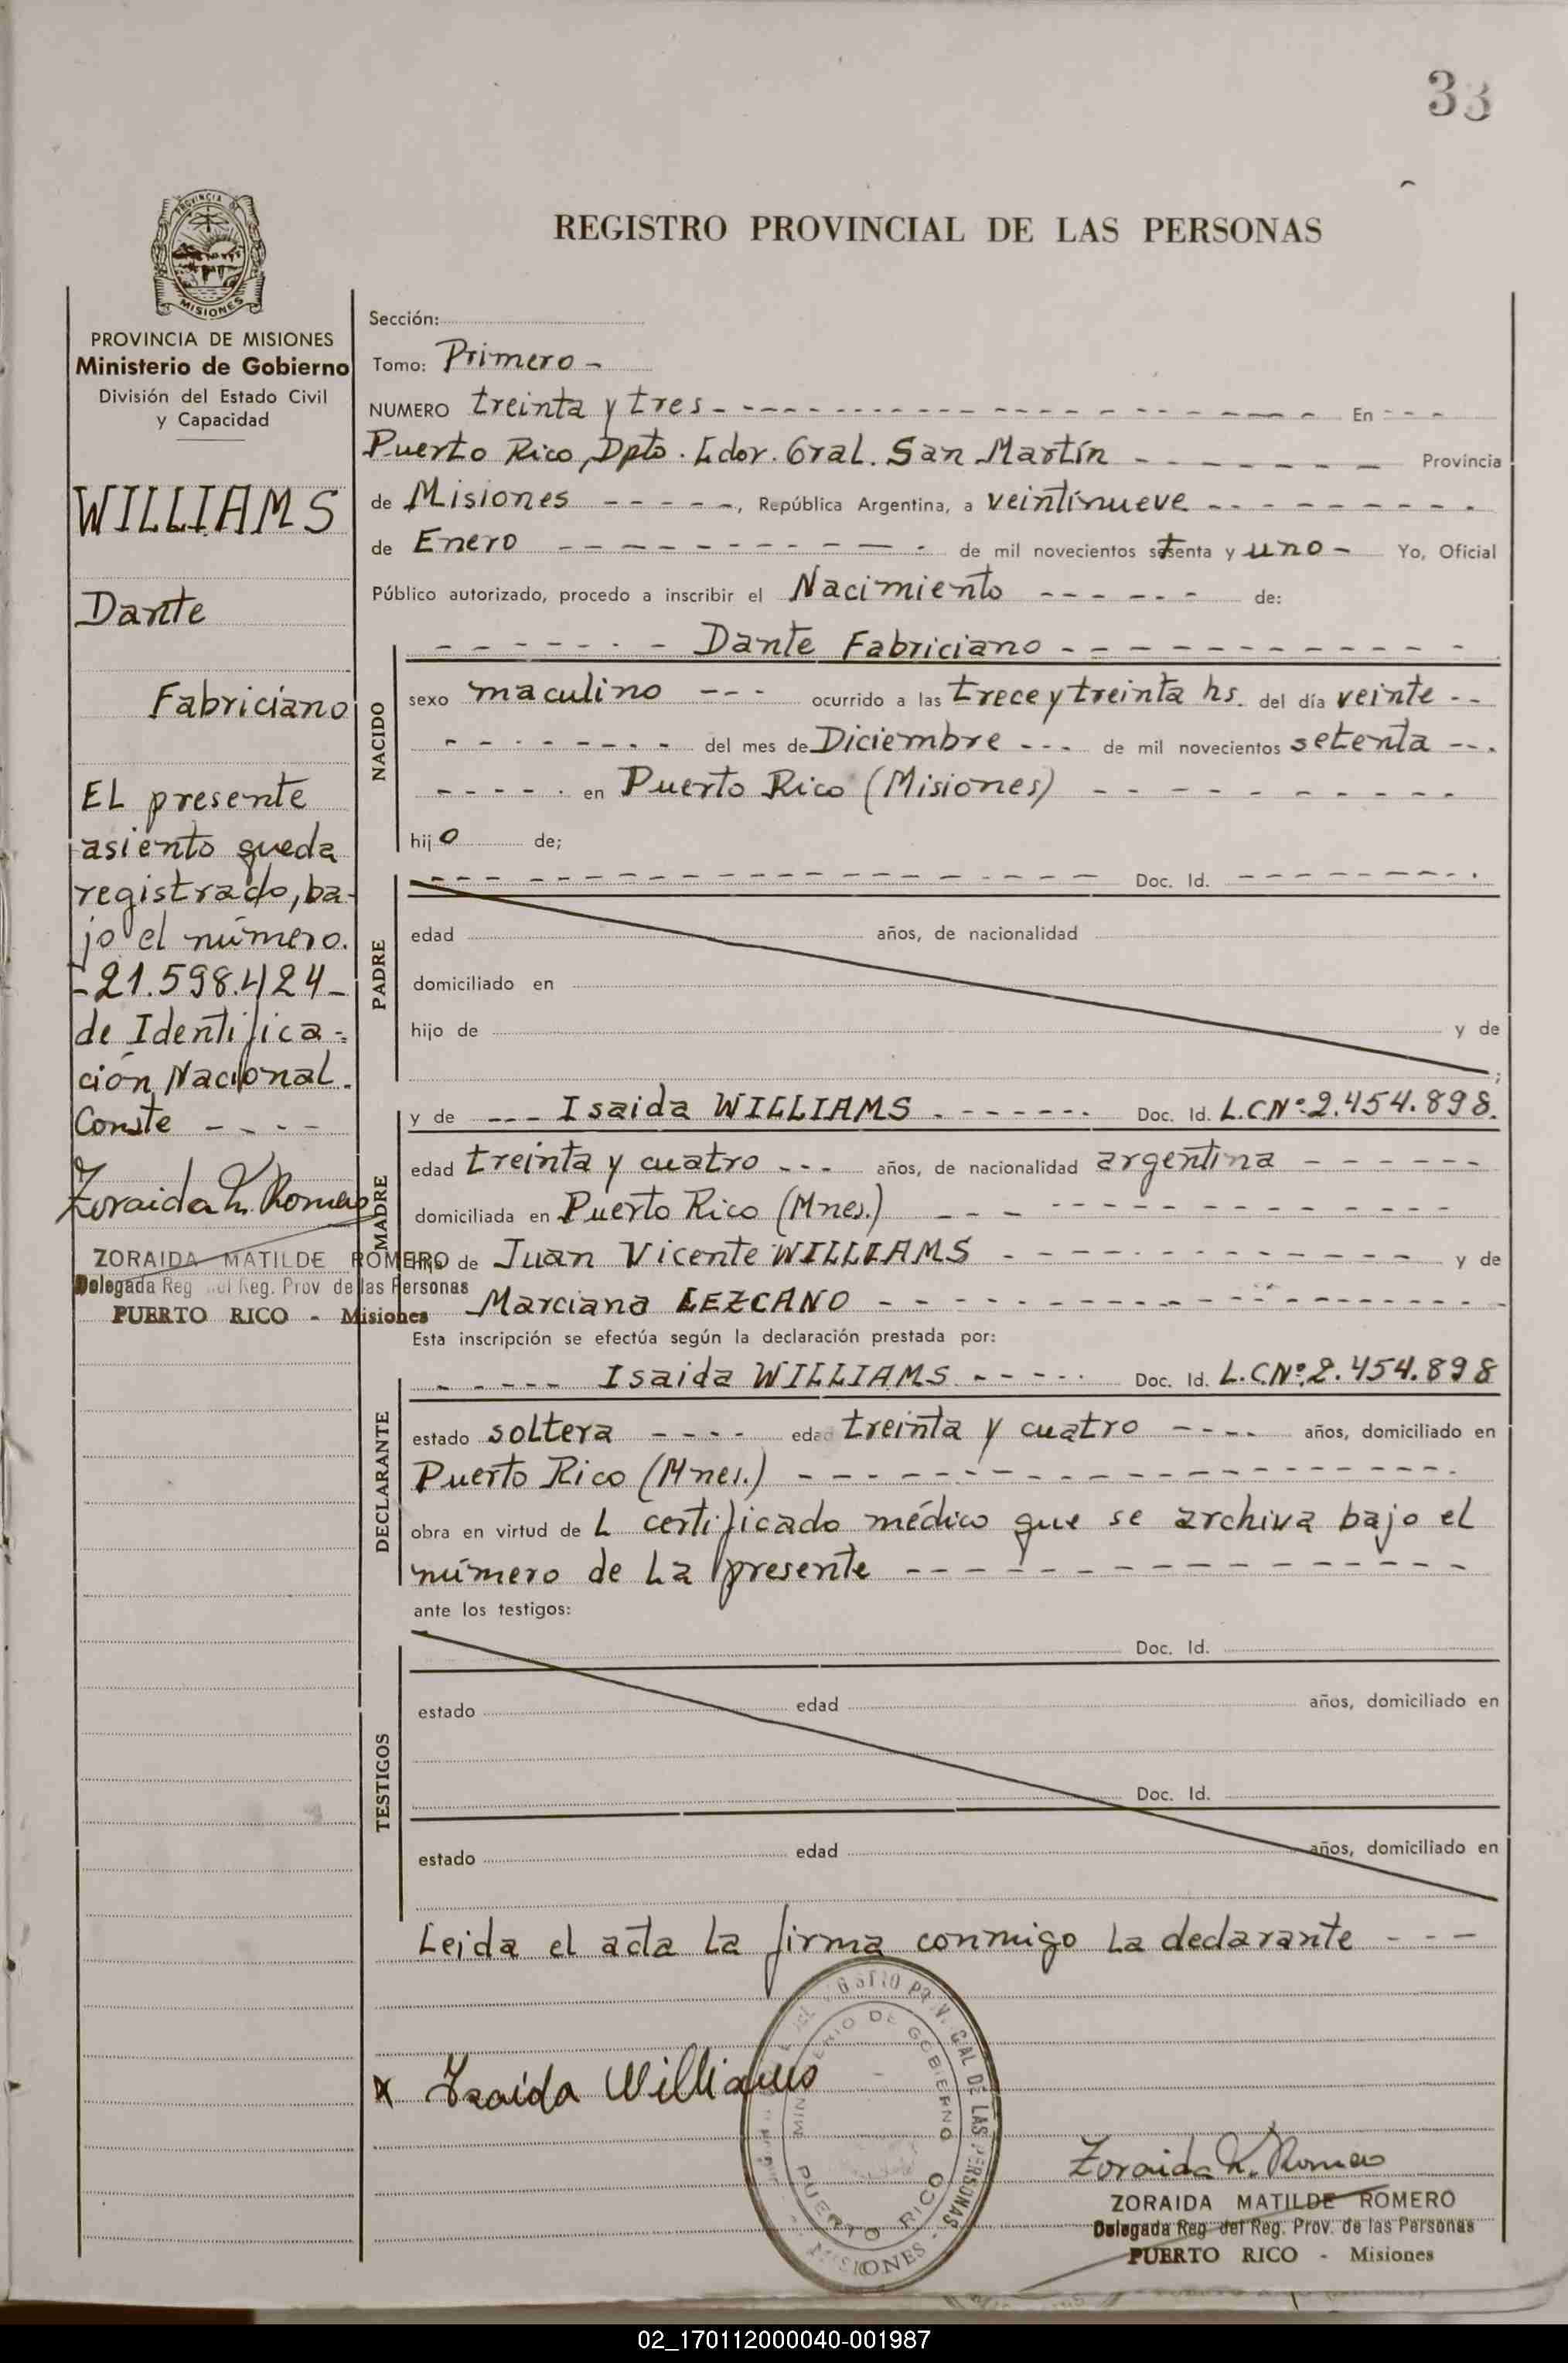 33
REGISTRO PROVINCIAL DE LAS PERSONAS
PROVINCIA
MISIONES
PROVINCIA DE MISIONES
Ministerio de Gobierno
División del Estado Civil
y Capacidad
WILLIAMS
Dante
Fabriciano
EL presente
asiento queda
registrado, ba-
jo el número.
-21.598.424-
de Identifica-
ción Nacional.
Conste - - - -
Zoraida M. Romero
ZORAIDA MATILDE ROMERO
Delegada Reg del Reg. Prov de las Personas
PUERTO RICO - Misiones
Sección:
Tomo: Primero -
NUMERO treinta y tres - - - En - - -
Puerto Rico, Dpto. Ldor. Gral. San Martín - - - Provincia
de Misiones - - - - -, República Argentina, a veintinueve - - -
de Enero - - - de mil novecientos setenta y uno - Yo, Oficial
Público autorizado, procedo a inscribir el Nacimiento - - - de:
NACIDO
- - - Dante Fabriciano - - -
sexo maculino - - - ocurrido a las trece y treinta hs. del día veinte - -
- - - del mes de Diciembre - - - de mil novecientos setenta - - -
- - - en Puerto Rico (Misiones) - - -
hijo de;
PADRE
- - - Doc. Id. - - -
edad años, de nacionalidad
domiciliado en
hijo de y de
;
MADRE
y de - - - Isaida WILLIAMS - - - Doc. Id. L.C.Nº:2.454.898.
edad treinta y cuatro - - - años, de nacionalidad argentina - - -
domiciliada en Puerto Rico (Mnes.) - - -
de Juan Vicente WILLIAMS - - - y de
Marciana LEZCANO - - -
Esta inscripción se efectúa según la declaración prestada por:
DECLARANTE
- - - Isaida WILLIAMS - - - Doc. Id. L.C.Nº:2.454.898
estado soltera - - - - edad treinta y cuatro - - - - años, domiciliado en
Puerto Rico (Mnes.) - - -
obra en virtud de L certificado médico que se archiva bajo el
número de La presente - - -
ante los testigos:
TESTIGOS
Doc. Id.
estado edad años, domiciliado en
Doc. Id.
estado edad años, domiciliado en
Leida el acta La firma conmigo La declarante - - -
x Isaida Williams
MINISTERIO DE GOBIERNO
PUERTO RICO
DE LAS PERSONAS
- MISIONES -
Zoraida M. Romero
ZORAIDA MATILDE ROMERO
Delegada Reg del Reg. Prov. de las Personas
PUERTO RICO - Misiones
02_170112000040-001987